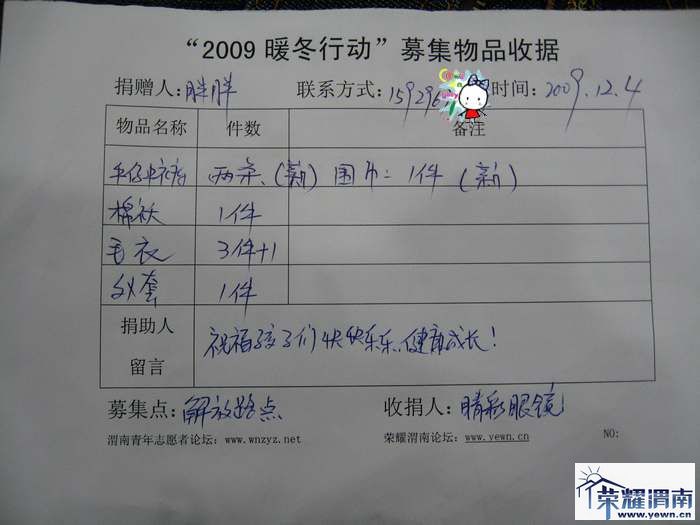 “2009 暖冬行动”募集物品收据
捐赠人: 胖胖 联系方式: 159296 时间: 2009.12.4
物品名称 件数 备注
牛仔 两条、(新) 围巾: 1件 (新)
棉袄 1件
毛衣 3件+1
外套 1件
捐助人
留言
祝福孩子们快快乐乐、健康成长!
募集点: 解放路点 收捐人: 睛彩眼镜
渭南青年志愿者论坛: www.wnzyz.net 荣耀渭南论坛: www.yewn.cn NO:
荣耀渭南
www.yewn.cn